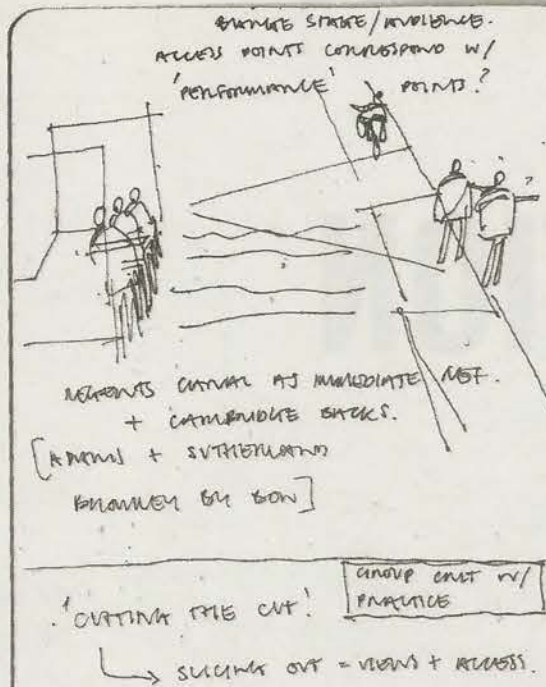 STAGE/AUDIENCE.
ACCESS POINTS CORRESPOND W/
'PERFORMANCE' POINTS?
REGENTS CANAL AS IMMEDIATE REF.
+ CAMBRIDGE BACKS.
[ADAMS + SUTHERLAND
BROMLEY BY BOW]
GROUP CRIT W/
PRACTICE
'CUTTING THE CUT'
SLICING OUT = VIEWS + ACCESS.